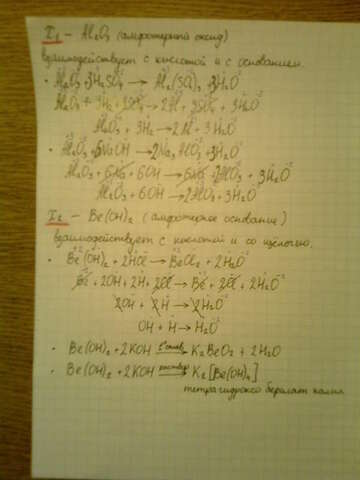 X₁ – Al₂O₃ (амфотерный оксид)
взаимодействует с кислотой и с основанием.
• Al₂O₃ + 3H₂SO₄ → Al₂(SO₄)₃ + 3H₂O
Al₂O₃ + 3H₂ + 3SO₄ → 2Al + 3SO₄ + 3H₂O
Al₂O₃ + 3H₂ → 2Al + 3H₂O
• Al₂O₃ + 6NaOH → 2Na₃AlO₃ + 3H₂O
Al₂O₃ + 6Na + 6OH → 6Na + 2AlO₃ + 3H₂O
Al₂O₃ + 6OH → 2AlO₃ + 3H₂O
X₂ – Be(OH)₂ (амфотерное основание)
взаимодействует с кислотой и со щелочью.
• Be(OH)₂ + 2HCl → BeCl₂ + 2H₂O
Be + 2OH + 2H + 2Cl → Be + 2Cl + 2H₂O
2OH + 2H → 2H₂O
OH + H → H₂O
• Be(OH)₂ + 2KOH → K₂BeO₂ + 2H₂O
• Be(OH)₂ + 2KOH раствор → K₂[Be(OH)₄]
тетрагидроксо бериллат калия